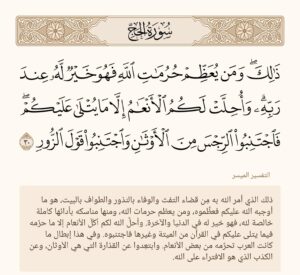 سُورَةُ الحَجِّ
ذَٰلِكَۖ وَمَن يُعَظِّمۡ حُرُمَٰتِ ٱللَّهِ فَهُوَ خَيۡرٞ لَّهُۥ عِندَ
رَبِّهِۦۗ وَأُحِلَّتۡ لَكُمُ ٱلۡأَنۡعَٰمُ إِلَّا مَا يُتۡلَىٰ عَلَيۡكُمۡۖ
فَٱجۡتَنِبُواْ ٱلرِّجۡسَ مِنَ ٱلۡأَوۡثَٰنِ وَٱجۡتَنِبُواْ قَوۡلَ ٱلزُّورِ ٣٠
التفسير الميسر
ذلك الذي أمر الله به مِن قضاء التفث والوفاء بالنذور والطواف بالبيت، هو ما
أوجبه الله عليكم فعظِّموه، ومن يعظم حرمات الله، ومنها مناسكه بأدائها كاملة
خالصة لله، فهو خير له في الدنيا والآخرة. وأحلَّ الله لكم أَكْلَ الأنعام إلا ما حرَّمه
فيما يتلى عليكم في القرآن من الميتة وغيرها فاجتنبوه، وفي هذا إبطال ما
كانت العرب تحرِّمه من بعض الأنعام، وابتعِدوا عن القذارة التي هي الأوثان، وعن
الكذب الذي هو الافتراء على الله.